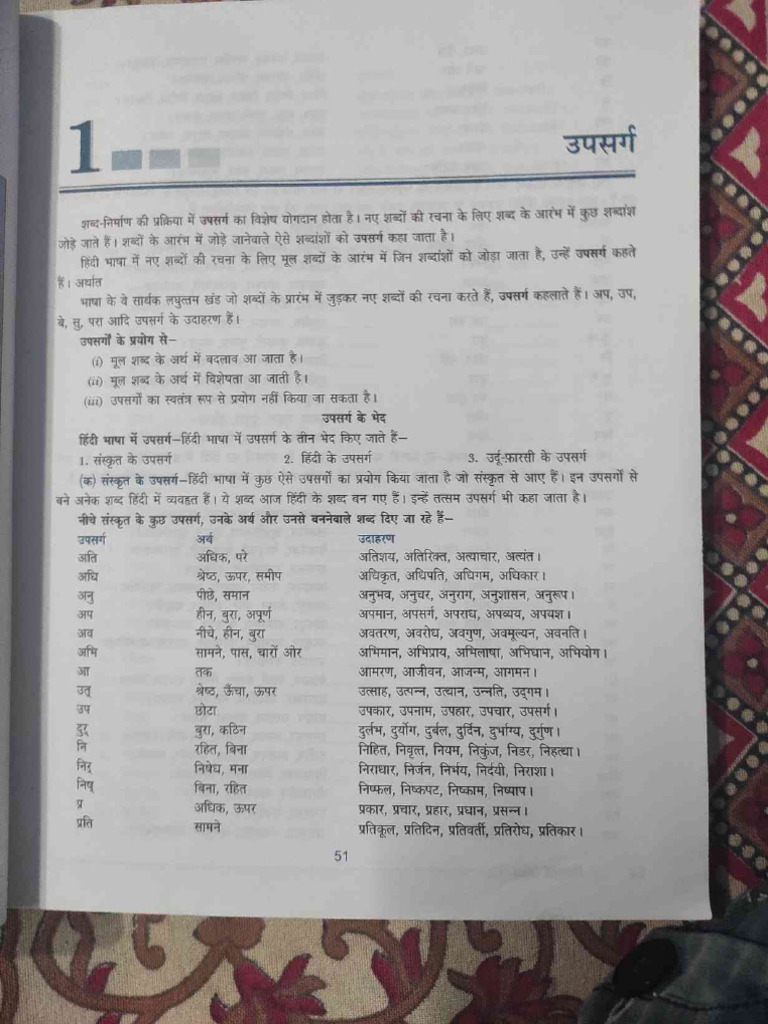 1
उपसर्ग
शब्द-निर्माण की प्रक्रिया में उपसर्ग का विशेष योगदान होता है। नए शब्दों की रचना के लिए शब्द के आरंभ में कुछ शब्दांश
जोड़े जाते हैं। शब्दों के आरंभ में जोड़े जानेवाले ऐसे शब्दांशों को उपसर्ग कहा जाता है।
हिंदी भाषा में नए शब्दों की रचना के लिए मूल शब्दों के आरंभ में जिन शब्दांशों को जोड़ा जाता है, उन्हें उपसर्ग कहते
हैं। अर्थात
भाषा के वे सार्थक लघुत्तम खंड जो शब्दों के प्रारंभ में जुड़कर नए शब्दों की रचना करते हैं, उपसर्ग कहलाते हैं। अप, उप,
बे, सु, परा आदि उपसर्ग के उदाहरण हैं।
उपसर्गों के प्रयोग से–
(i) मूल शब्द के अर्थ में बदलाव आ जाता है।
(ii) मूल शब्द के अर्थ में विशेषता आ जाती है।
(iii) उपसर्गों का स्वतंत्र रूप से प्रयोग नहीं किया जा सकता है।
उपसर्ग के भेद
हिंदी भाषा में उपसर्ग–हिंदी भाषा में उपसर्ग के तीन भेद किए जाते हैं–
1. संस्कृत के उपसर्ग 2. हिंदी के उपसर्ग 3. उर्दू-फ़ारसी के उपसर्ग
(क) संस्कृत के उपसर्ग–हिंदी भाषा में कुछ ऐसे उपसर्गों का प्रयोग किया जाता है जो संस्कृत से आए हैं। इन उपसर्गों से
बने अनेक शब्द हिंदी में व्यवहृत हैं। ये शब्द आज हिंदी के शब्द बन गए हैं। इन्हें तत्सम उपसर्ग भी कहा जाता है।
नीचे संस्कृत के कुछ उपसर्ग, उनके अर्थ और उनसे बननेवाले शब्द दिए जा रहे हैं–
उपसर्ग अर्थ उदाहरण
अति अधिक, परे अतिशय, अतिरिक्त, अत्याचार, अत्यंत।
अधि श्रेष्ठ, ऊपर, समीप अधिकृत, अधिपति, अधिगम, अधिकार।
अनु पीछे, समान अनुभव, अनुचर, अनुराग, अनुशासन, अनुरूप।
अप हीन, बुरा, अपूर्ण अपमान, अपसर्ग, अपराध, अपव्यय, अपयश।
अव नीचे, हीन, बुरा अवतरण, अवरोध, अवगुण, अवमूल्यन, अवनति।
अभि सामने, पास, चारों ओर अभिमान, अभिप्राय, अभिलाषा, अभिधान, अभियोग।
आ तक आमरण, आजीवन, आजन्म, आगमन।
उत् श्रेष्ठ, ऊँचा, ऊपर उत्साह, उत्पन्न, उत्थान, उन्नति, उद्गम।
उप छोटा उपकार, उपनाम, उपहार, उपचार, उपसर्ग।
दुर् बुरा, कठिन दुर्लभ, दुर्योग, दुर्बल, दुर्दिन, दुर्भाग्य, दुर्गुण।
नि रहित, बिना निहित, निवृत्त, नियम, निकुंज, निडर, निहत्था।
निर् निषेध, मना निराधार, निर्जन, निर्भय, निर्दयी, निराशा।
निष् बिना, रहित निष्फल, निष्कपट, निष्काम, निष्पाप।
प्र अधिक, ऊपर प्रकार, प्रचार, प्रहार, प्रधान, प्रसन्न।
प्रति सामने प्रतिकूल, प्रतिदिन, प्रतिवर्ती, प्रतिरोध, प्रतिकार।
51